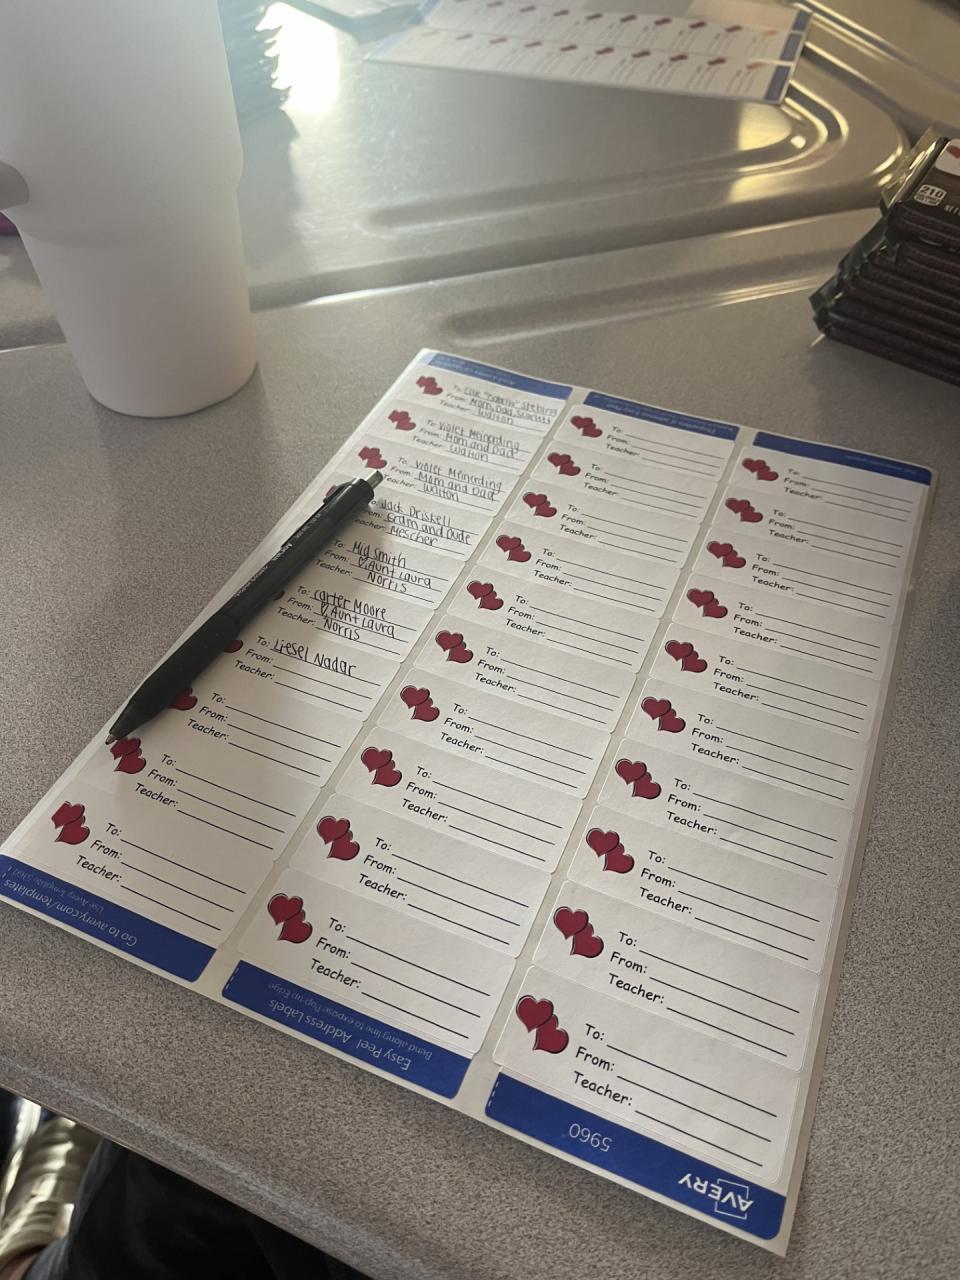 To: Ellie "Isabella" Stebing
From: Mom, Dad, Scarlett
Teacher: Walton
To: Violet Meinerding
From: Mom and Dad
Teacher: Walton
To: Violet Meinerding
From: Mom and Dad
Walton
To: Jack Driskell
From: Gram and Dude
Teacher: Mescher
To: Mig Smith
From: ♡, Aunt Laura
Teacher: Norris
To: Carter Moore
From: ♡, Aunt Laura
Teacher: Norris
To: Liesel Nadar
From:
Teacher:
To:
From:
Teacher:
To:
From:
Teacher:
To:
From:
Teacher:
Go to avery.com/templates
Use Avery Template
To:
From:
Teacher:
To:
From:
Teacher:
To:
From:
Teacher:
To:
From:
Teacher:
To:
From:
Teacher:
To:
From:
Teacher:
To:
From:
Teacher:
To:
From:
Teacher:
To:
From:
Teacher:
To:
From:
Teacher:
Easy Peel Address Labels
Bend along line to expose Pop-up Edge
To:
From:
Teacher:
To:
From:
Teacher:
To:
From:
Teacher:
To:
From:
Teacher:
To:
From:
Teacher:
To:
From:
Teacher:
To:
From:
Teacher:
To:
From:
Teacher:
To:
From:
Teacher:
To:
From:
Teacher:
5960
AVERY
210